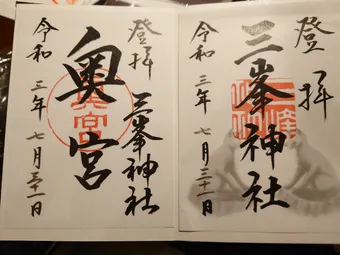 登拝
三峯神社
令和三年七月三十一日
登拝
三峯神社
奥宮
令和三年七月三十一日